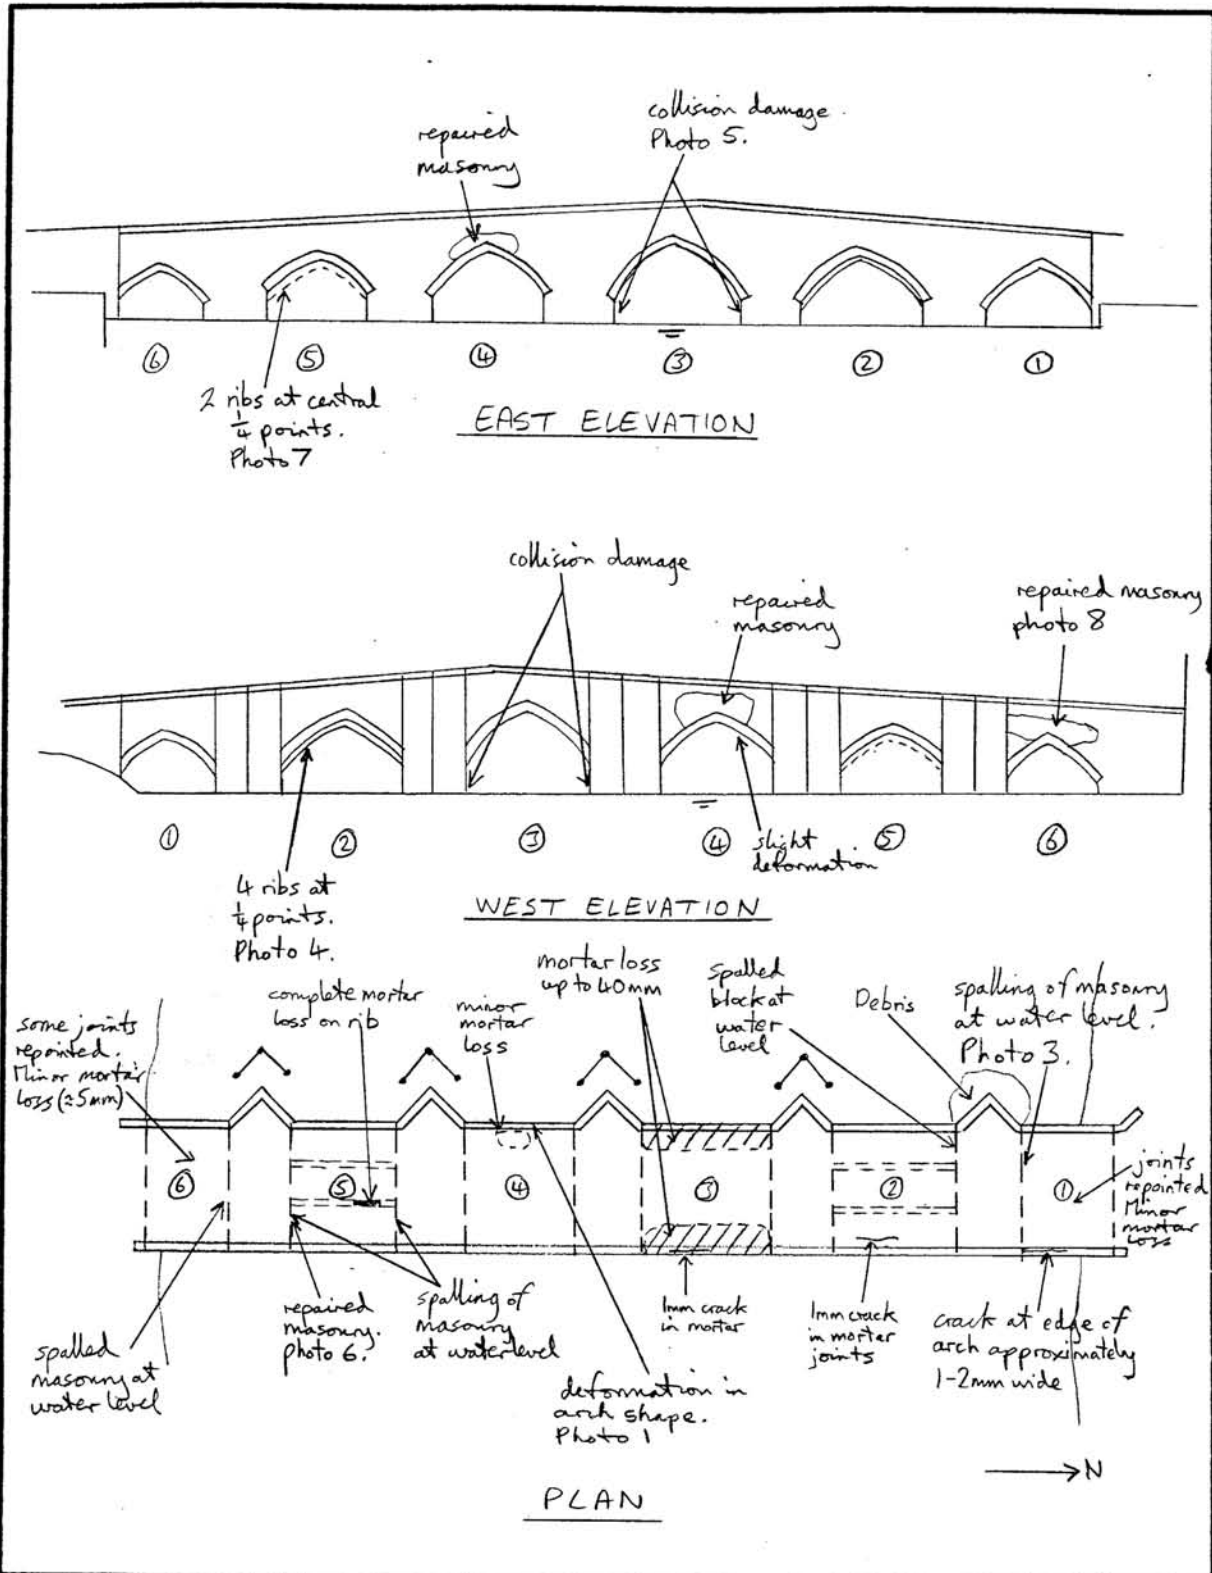 repaired
masonry
collision damage.
Photo 5.
⑥ ⑤ ④ ③ ② ①
2 ribs at central
1/4 points.
Photo 7
EAST ELEVATION
collision damage
repaired
masonry
repaired masonry
photo 8
① ② ③ ④ ⑤ ⑥
slight
deformation
4 ribs at
1/4 points.
Photo 4.
WEST ELEVATION
some joints
repointed.
Minor mortar
loss (≈5mm)
complete mortar
loss on rib
minor
mortar
loss
mortar loss
up to 40mm
spalled
block at
water
level
Debris
spalling of masonry
at water level.
Photo 3.
⑥ ⑤ ④ ③ ② ①
joints
repointed
Minor
mortar
loss
spalled
masonry at
water level
repaired
masonry.
photo 6.
spalling of
masonry
at water level
deformation in
arch shape.
Photo 1
1mm crack
in mortar
1mm crack
in mortar
joints
crack at edge of
arch approximately
1-2mm wide
N
PLAN